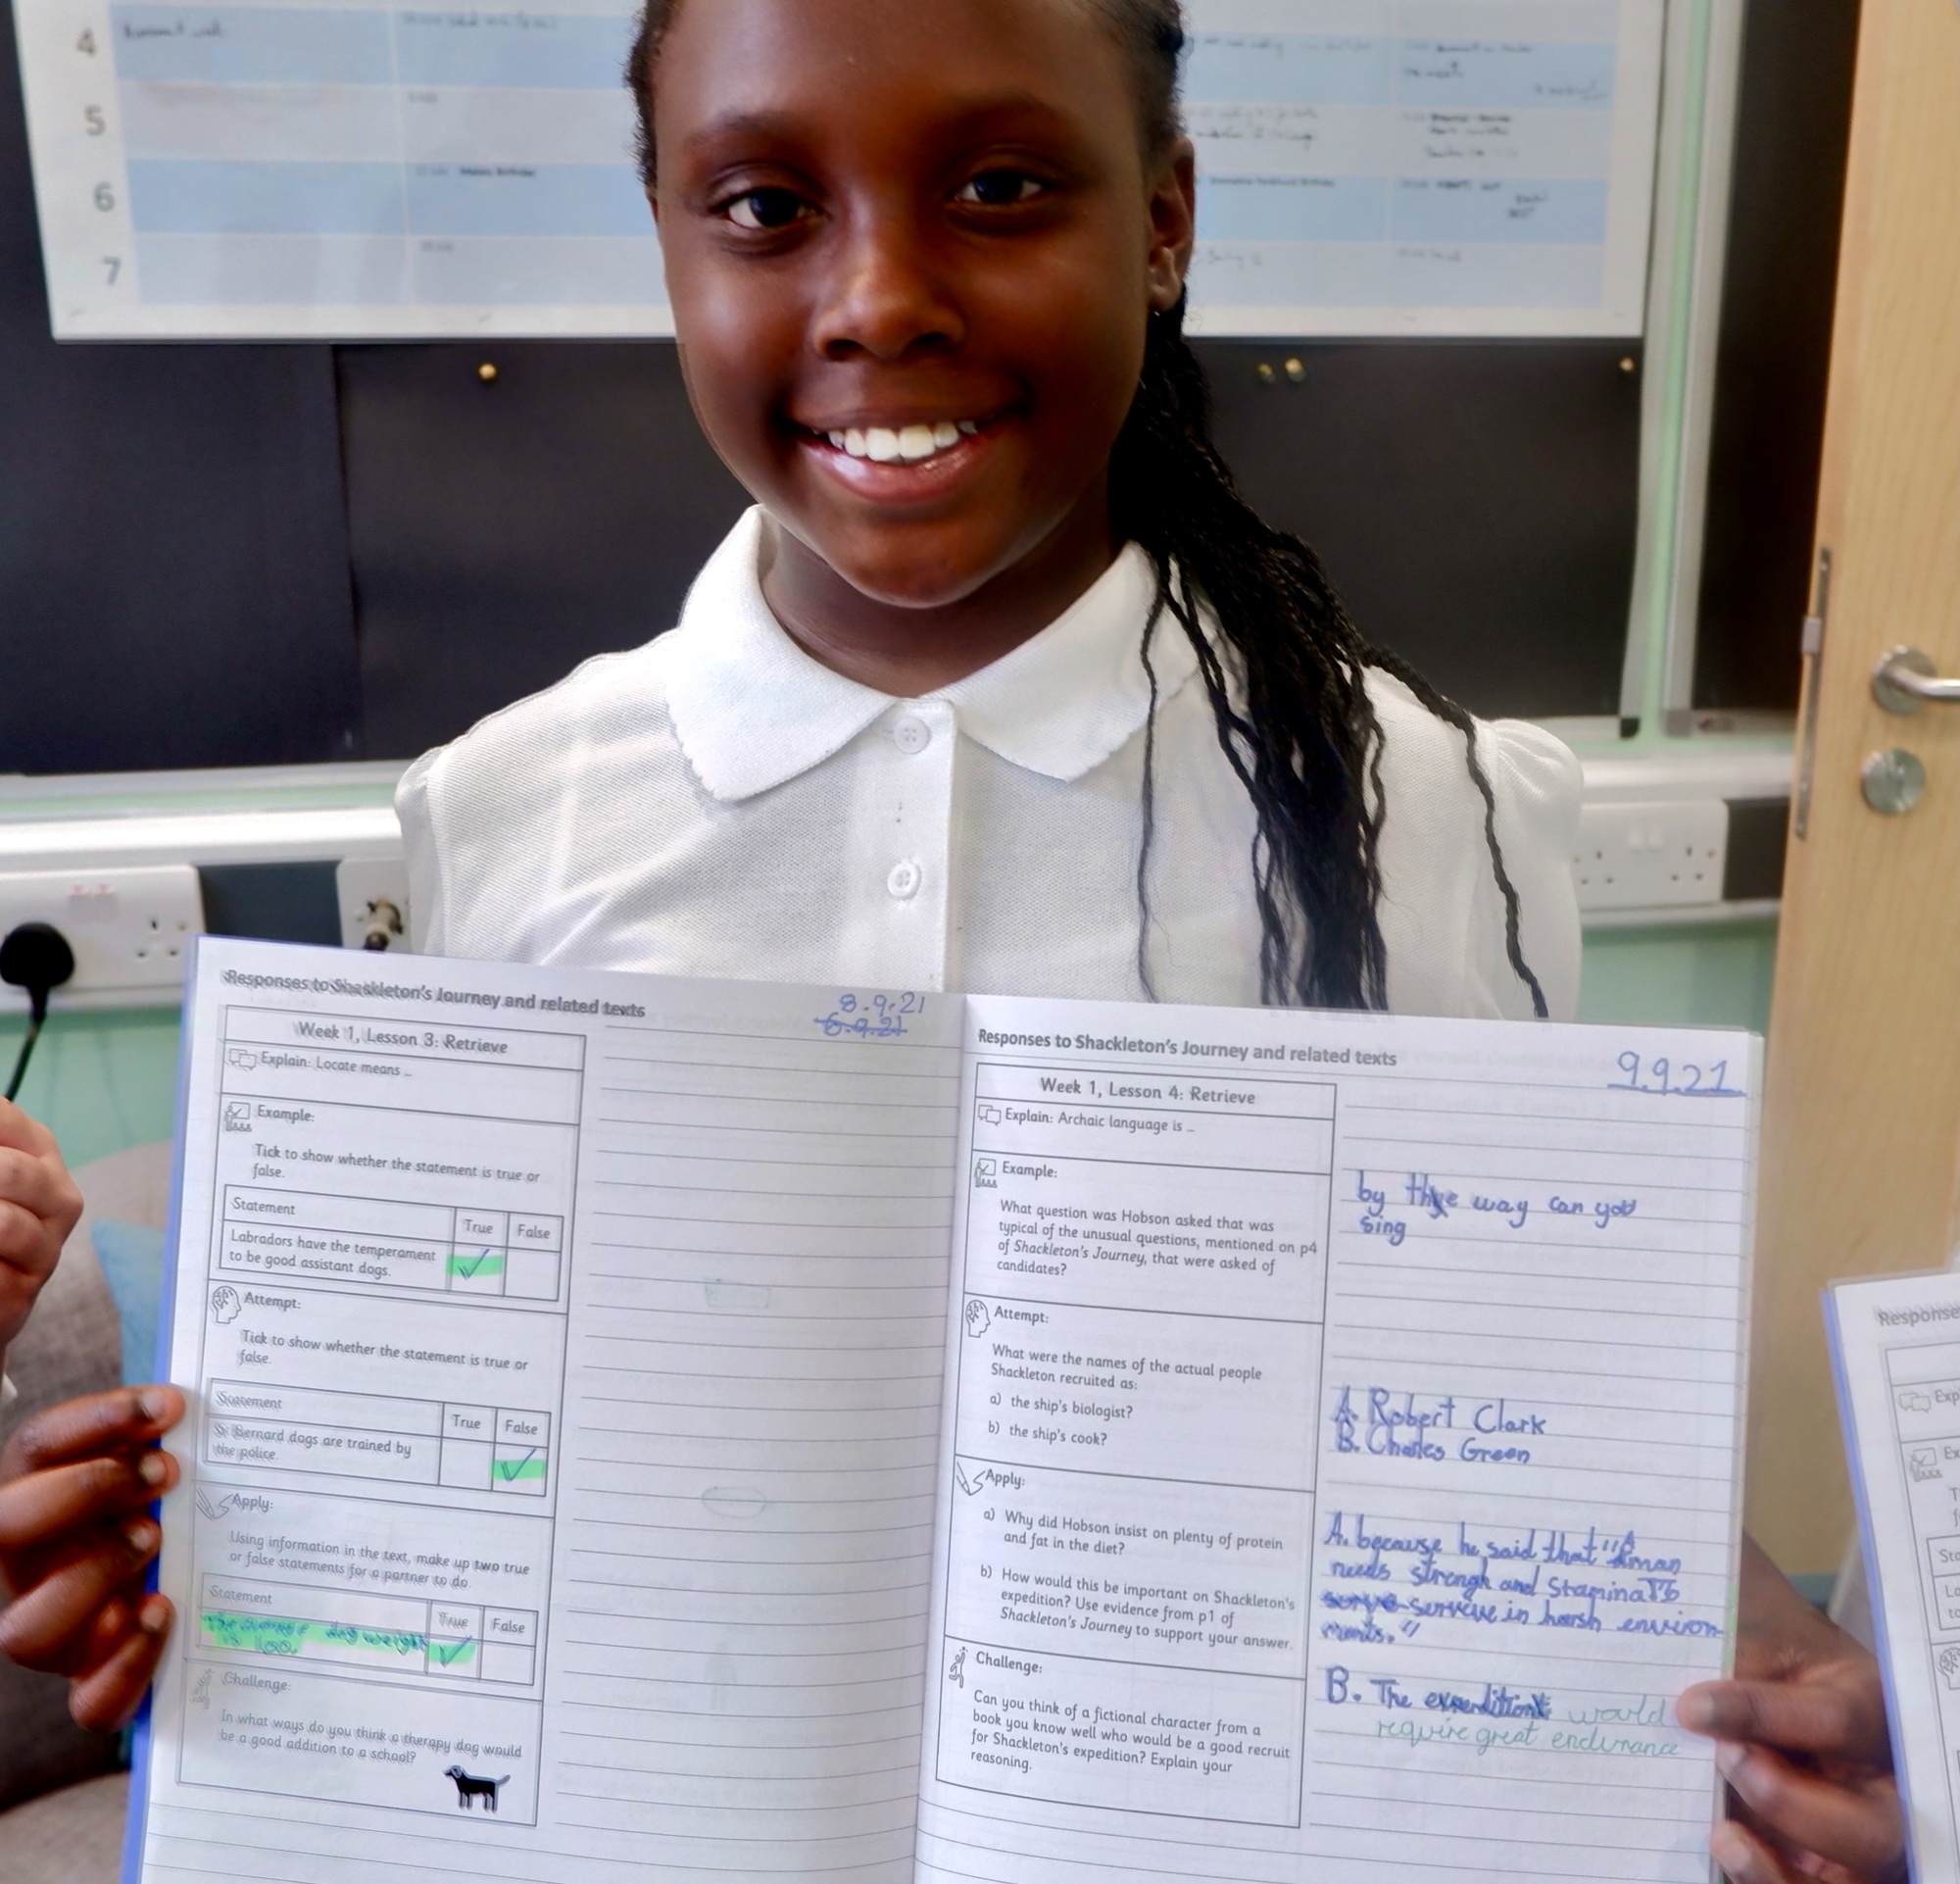 4
5
6
7
Responses to Shackleton's Journey and related texts
8.9.21
6.9.21
Week 1, Lesson 3: Retrieve
Explain: Locate means ...
Example:
Tick to show whether the statement is true or
false.
Statement
True
False
Labradors have the temperament
to be good assistant dogs.
Attempt:
Tick to show whether the statement is true or
false.
Statement
True
False
St Bernard dogs are trained by
the police.
Apply:
Using information in the text, make up two true
or false statements for a partner to do.
Statement
True
False
dog weight
is 100.
Challenge:
In what ways do you think a therapy dog would
be a good addition to a school?
Responses to Shackleton's Journey and related texts
9.9.21
Week 1, Lesson 4: Retrieve
Explain: Archaic language is ...
Example:
What question was Hobson asked that was
typical of the unusual questions, mentioned on p4
of Shackleton's Journey, that were asked of
candidates?
by the way can you
sing
Attempt:
What were the names of the actual people
Shackleton recruited as:
a) the ship's biologist?
b) the ship's cook?
A. Robert Clark
B. Charles Green
Apply:
a) Why did Hobson insist on plenty of protein
and fat in the diet?
b) How would this be important on Shackleton's
expedition? Use evidence from p1 of
Shackleton's Journey to support your answer.
A. because he said that "A man
needs strengh and stamina To
serveve in harsh environ-
ments."
Challenge:
Can you think of a fictional character from a
book you know well who would be a good recruit
for Shackleton's expedition? Explain your
reasoning.
B. The would
require great endurance
Response
Exp
Ex